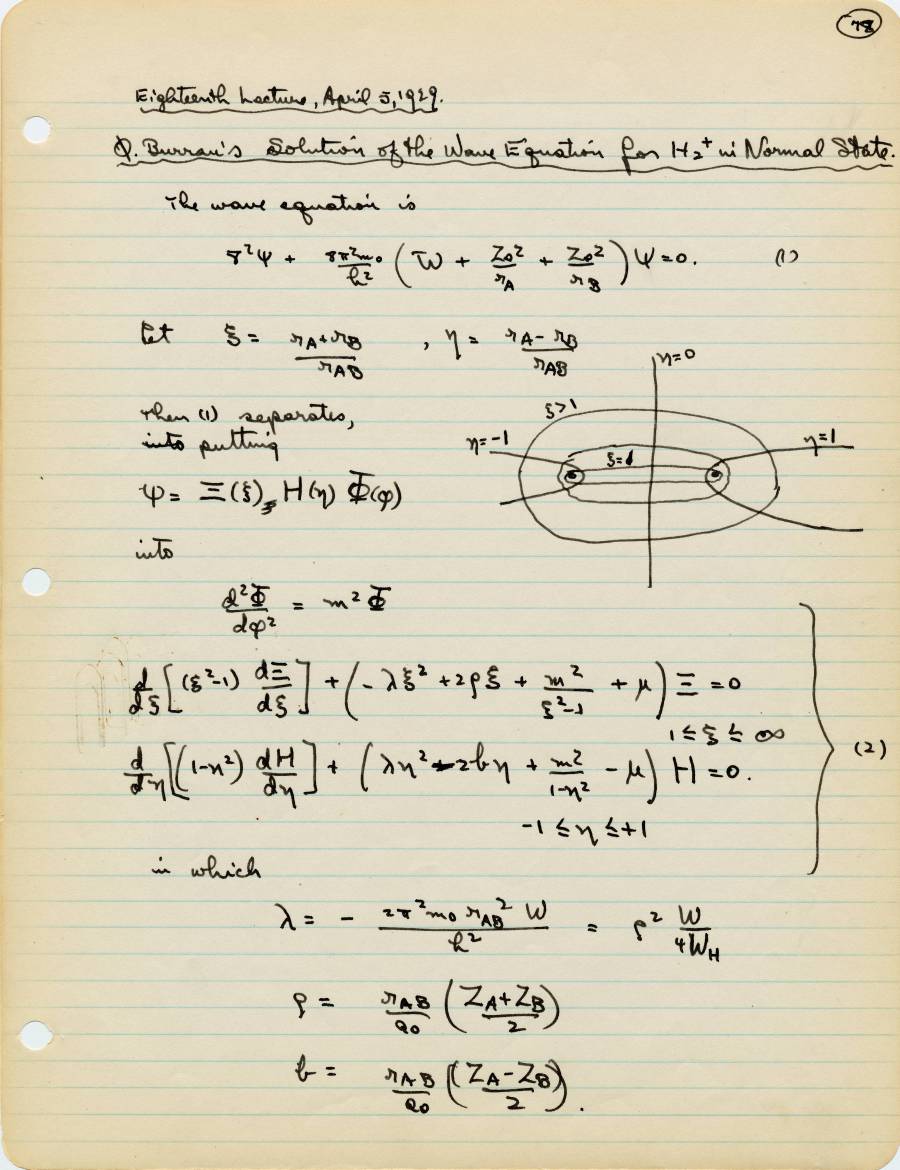 78
Eighteenth Lecture, April 5, 1929.
Ø. Burrau's Solution of the Wave Equation for H₂⁺ in Normal State.
The wave equation is
∇²Ψ + 8π²m₀/h² ( W + Ze²/r_A + Ze²/r_B ) Ψ = 0. (1)
Let ξ = (r_A + r_B)/r_AB , η = (r_A − r_B)/r_AB
η=0
Then (1) separates,
ξ>1
into putting
η=-1
ξ=1
η=1
ψ = Ξ(ξ) H(η) Φ(φ)
into
d²Φ/dφ² = m² Φ
d/dξ [(ξ²-1) dΞ/dξ] + (-λξ² + 2ρξ + m²/(ξ²-1) + μ) Ξ = 0
1 ≤ ξ ≤ ∞
(2)
d/dη [(1-η²) dH/dη] + (λη² - 2bη + m²/(1-η²) - μ) H = 0.
-1 ≤ η ≤ +1
in which
λ = - 2π²m₀ r_AB² W/h² = ρ² W/4W_H
ρ = r_AB/a₀ ((Z_A + Z_B)/2)
b = r_AB/a₀ ((Z_A - Z_B)/2).